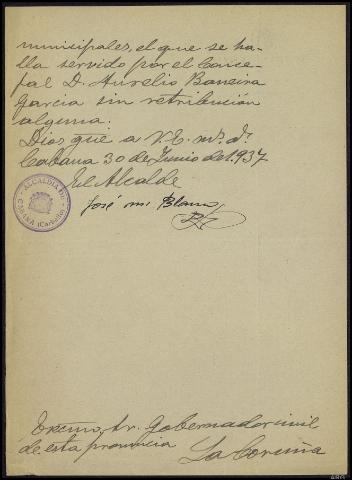 municipales, el que se ha-
lla servido por el Conce-
jal D. Aurelio Baneira
Garcia sin retribución
alguna.
Dios gue a V.E. ms. as.
Cabana 30 de Junio de 1.937
El Alcalde
José Mª Blanco
ALCALDÍA DE
CABANA (Coruña)
Excmo. Sr. Gobernador civil
de esta provincia
La Coruña